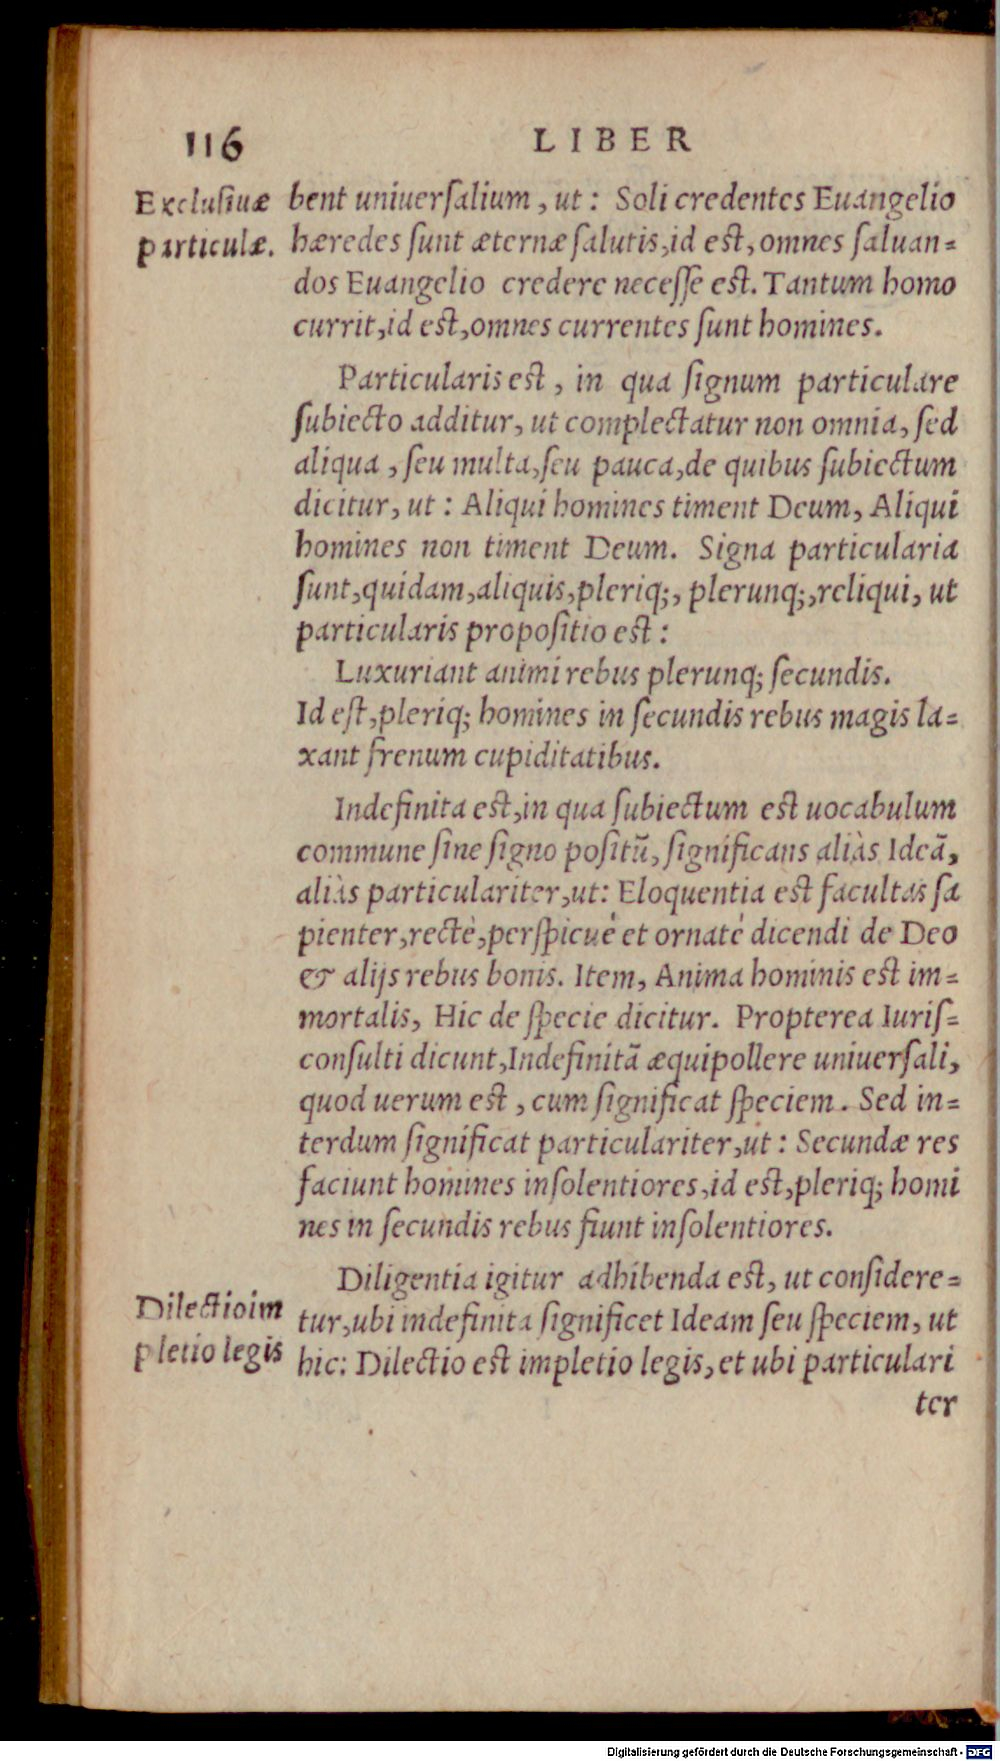 116 LIBER
Exclusiuæ
particulæ.
bent uniuerſalium, ut: Soli credentes Euangelio
hæredes ſunt æternæ ſalutis, id est, omnes ſaluan=
dos Euangelio credere neceſſe est. Tantum homo
currit, id est, omnes currentes ſunt homines.
Particularis est, in qua ſignum particulare
ſubiecto additur, ut complectatur non omnia, ſed
aliqua, ſeu multa, ſeu pauca, de quibus ſubiectum
dicitur, ut: Aliqui homines timent Deum, Aliqui
homines non timent Deum. Signa particularia
ſunt, quidam, aliquis, pleriq;, plerunq;, reliqui, ut
particularis propoſitio est:
Luxuriant animi rebus plerunq; ſecundis.
Id eſt, pleriq; homines in ſecundis rebus magis la=
xant frenum cupiditatibus.
Indefinita est, in qua ſubiectum est uocabulum
commune ſine ſigno poſitũ, ſignificans aliàs Ideã,
aliàs particulariter, ut: Eloquentia est facultas ſa
pienter, rectè, perſpicuè et ornatè dicendi de Deo
& alijs rebus bonis. Item, Anima hominis est im=
mortalis, Hic de ſpecie dicitur. Propterea Iuriſ=
conſulti dicunt, Indefinitã æquipollere uniuerſali,
quod uerum est, cum ſignificat ſpeciem. Sed in=
terdum ſignificat particulariter, ut: Secundæ res
faciunt homines inſolentiores, id est, pleriq; homi
nes in ſecundis rebus fiunt inſolentiores.
Diligentia igitur adhibenda est, ut conſidere=
Dilectio im
pletio legis
tur, ubi indefinita ſignificet Ideam ſeu ſpeciem, ut
hic: Dilectio est impletio legis, et ubi particulari
ter
Digitalisierung gefördert durch die Deutsche Forschungsgemeinschaft - DFG